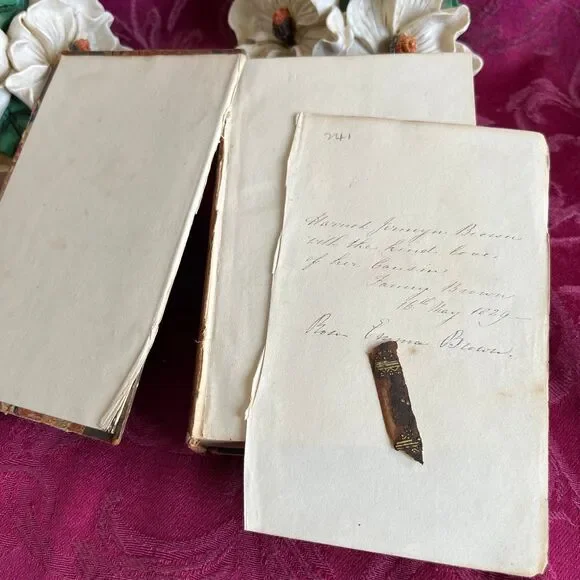 241
Harriet Jermyn Brown
with the kind love
of her Cousin
Fanny Brown
16th May 1829—
Rose Emma Brown.